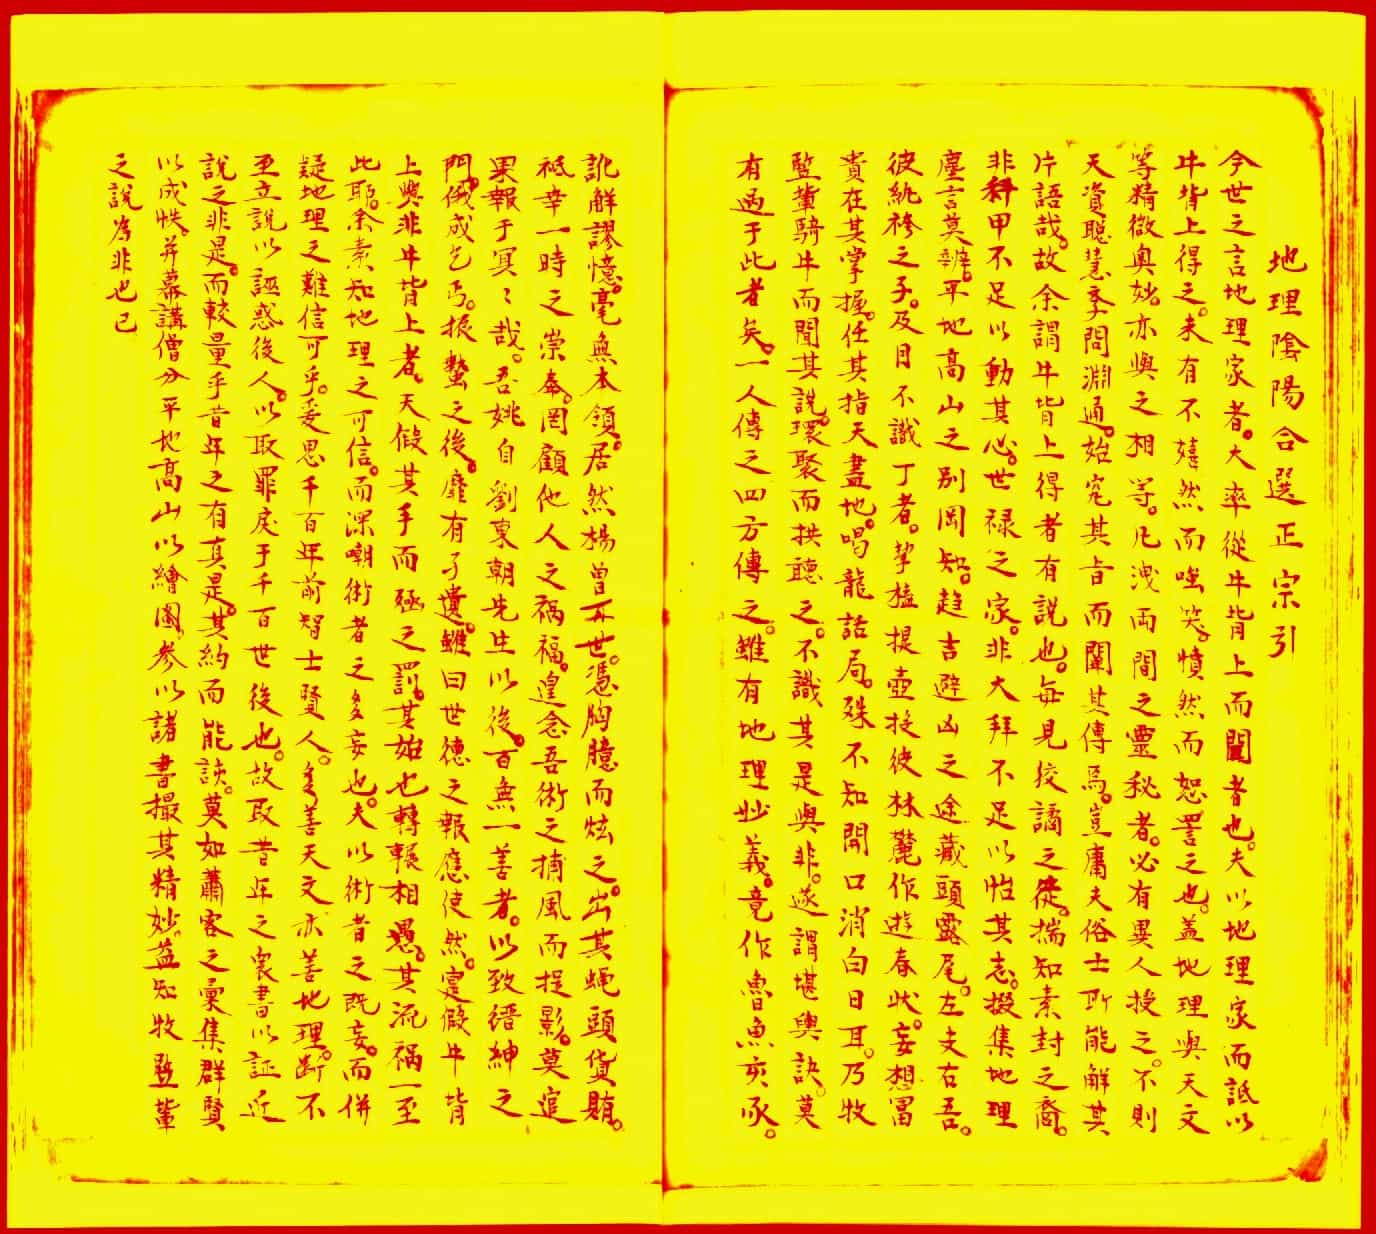 地理陰陽合選正宗引
今世之言地理家者。大率從牛背上而闖者也。夫以地理家而詆以
牛背上得之。未有不嘻然而嗤笑。憤然而恕詈之也。蓋地理與天文
等精微奧妙。亦與之相等。凡洩両間之靈秘者。必有異人授之。不則
天資聰慧。季問淵通。始究其旨而闡其傳焉。豈庸夫俗士所能解其
片語哉。故余謂牛背上得者有説也。每見狡譎之徒。揣知素封之裔。
非科甲不足以動其心。世禄之家。非大拜不足以怡其志。掇集地理
塵言莫辨。平地高山之別罔知。趋吉避凶之途藏頭露尾。左支右吾。
彼紈袴之子。及目不識丁者。挈榼提壺挺彼林麓作遊春状。妄想冨
貴在其掌握。任其指天畫地。喝龍話局。殊不知開口消白日耳。乃牧
豎輩騎牛而聞其説。環聚而拱聽之。不識其是與非。遂謂堪輿訣。莫
有過于此者矣。一人傳之四方傳之。雖有地理妙義。竟作魯魚亥豕。
訛解謬憶。毫無本領。居然楊曾再世。憑胸臆而炫之。出其蝇頭貨賄。
祗幸一時之崇奉。罔顧他人之禍福。遑念吾術之捕風而捉影。莫逭
果報于冥〻哉。吾姚自劉東朝先生以後。百無一善者。以致縉紳之
門。俄成乞丐。振蟄之後。靡有孑遺。雖曰世德之報應使然。寔假牛背
上與非牛背上者。天假其手而殛之罰。其始也轉輾相愚。其流禍一至
此耶。余素知地理之可信。而深嘲術者之多妄也。夫以術者之既妄。而併
疑地理之難信可乎。爰思千百年前智士賢人。多善天文亦善地理。断不
至立説以誣惑後人。以取罪戾于千百世後也。故取昔年之衷書以証近
説之非是。而較量乎昔年之有真是。其約而能該。莫如蕭客之彙集群賢
以成帙。并幕講僧分平地高山以繪圖。参以諸書撮其精妙益知牧豎輩
之説為非也已